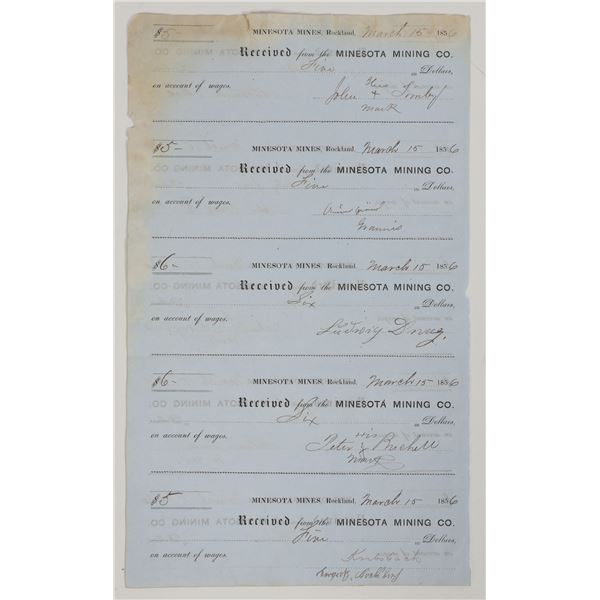 $5- MINESOTA MINES, Rockland, March 15 1856
Received from the MINESOTA MINING CO.
Five Dollars,
on account of wages.
John his X
mark
$5 MINESOTA MINES, Rockland, March 15 1856
Received from the MINESOTA MINING CO.
Five Dollars,
on account of wages.
$6- MINESOTA MINES, Rockland, March 15 1856
Received from the MINESOTA MINING CO.
Six Dollars,
on account of wages.
Ludwig
$6- MINESOTA MINES, Rockland, March 15 1856
Received from the MINESOTA MINING CO.
Six Dollars,
on account of wages.
his
Peter X
mark
$5 MINESOTA MINES, Rockland, March 15 1856
Received from the MINESOTA MINING CO.
Five Dollars,
on account of wages.